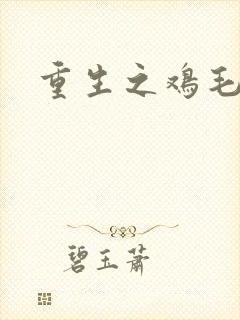 重生之鸡毛
碧玉萧